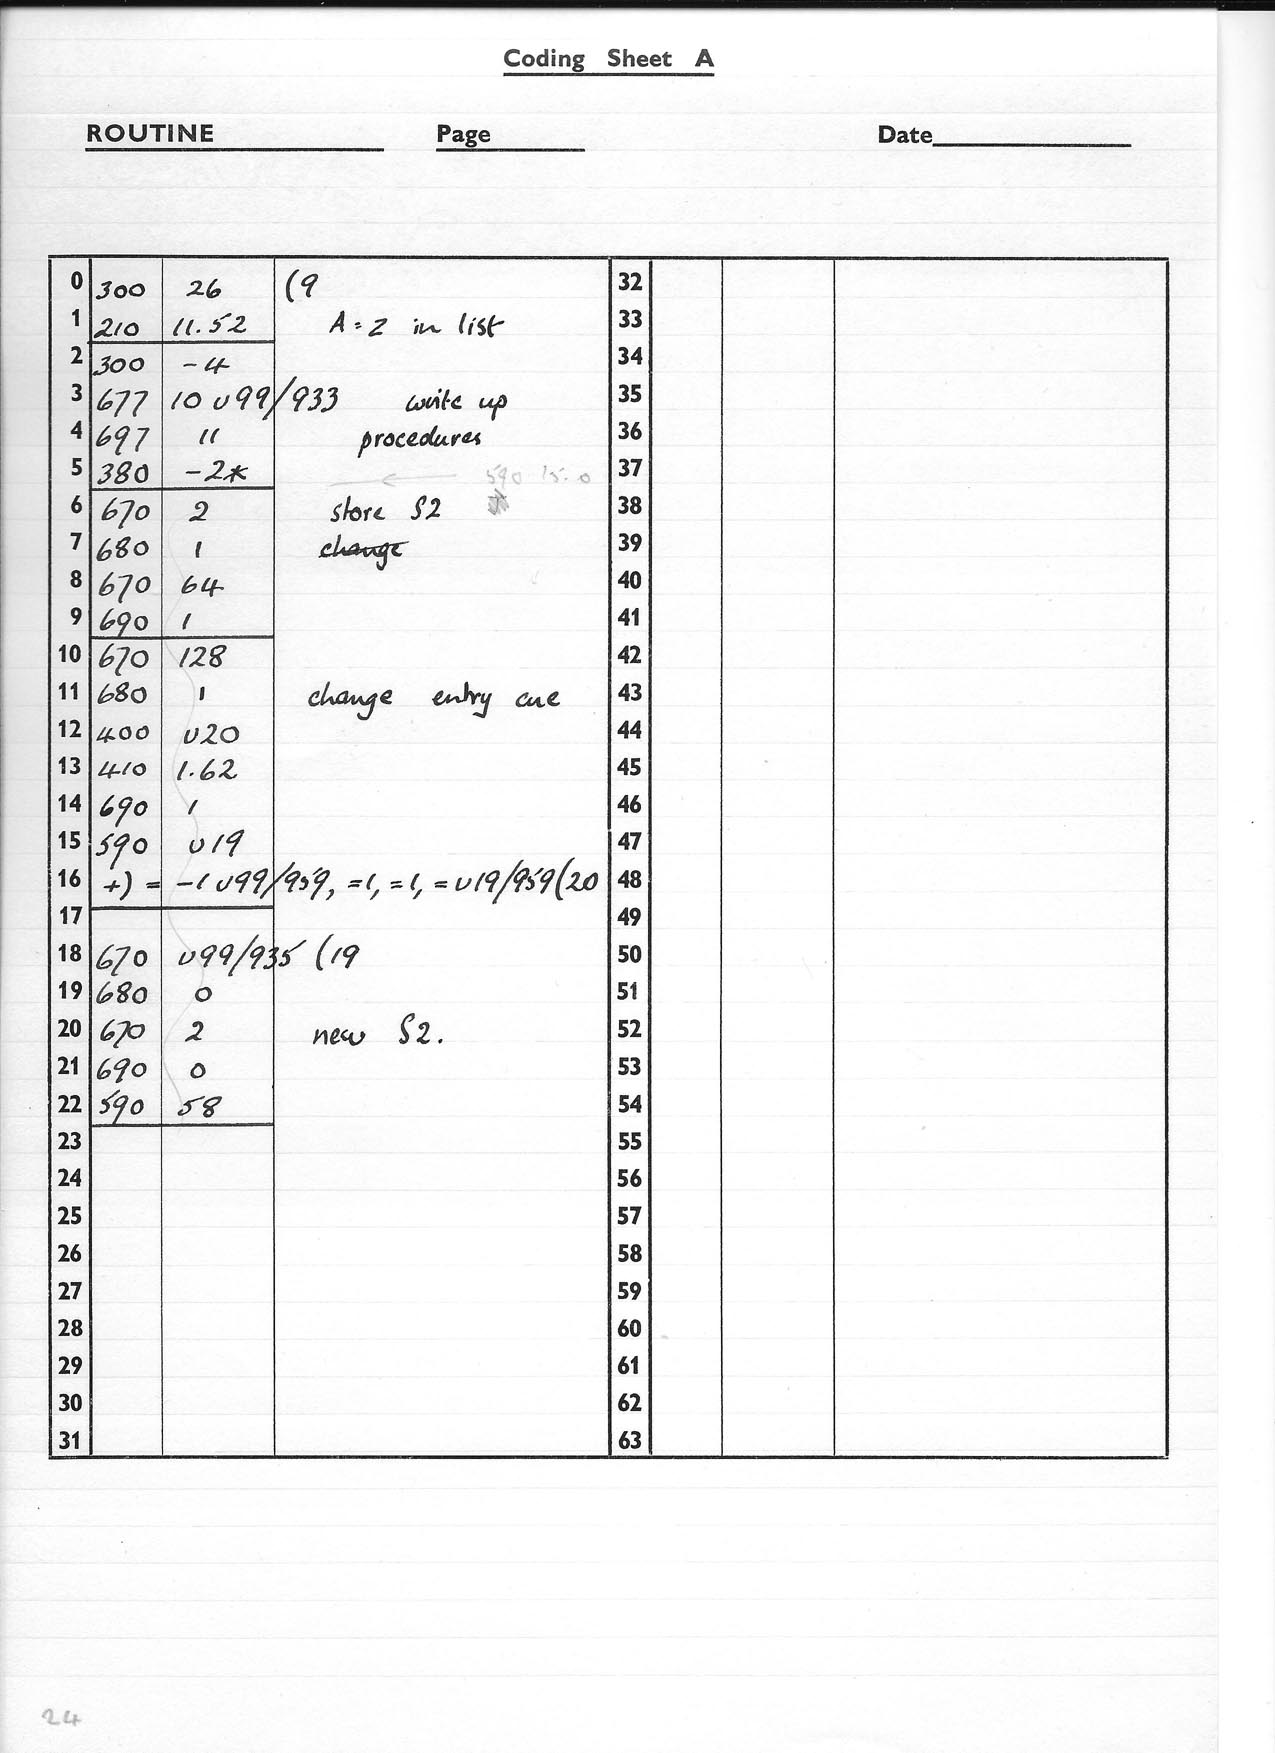 Coding Sheet A
ROUTINE Page Date
0 300 26 (9
1 210 11.52 A=Z in list
2 300 -4
3 677 10 υ99/933 write up
4 697 11 procedures
5 380 -2* ← 590 15.0
6 670 2 store S2
7 680 1 change
8 670 64
9 690 1
10 670 128
11 680 1 change entry cue
12 400 υ20
13 410 1.62
14 690 1
15 590 υ19
16 +) = -1 υ99/959, =1, =1, =υ19/959(20
17
18 670 υ99/935 (19
19 680 0
20 670 2 new S2.
21 690 0
22 590 58
23
24
25
26
27
28
29
30
31
32
33
34
35
36
37
38
39
40
41
42
43
44
45
46
47
48
49
50
51
52
53
54
55
56
57
58
59
60
61
62
63
24